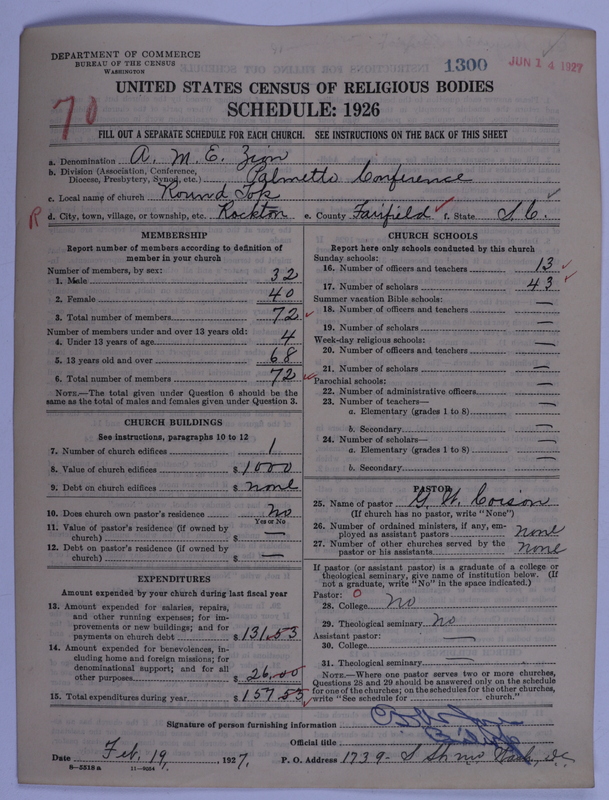 DEPARTMENT OF COMMERCE
BUREAU OF THE CENSUS
WASHINGTON
1300
JUN 14 1927
UNITED STATES CENSUS OF RELIGIOUS BODIES
SCHEDULE: 1926
70
FILL OUT A SEPARATE SCHEDULE FOR EACH CHURCH. SEE INSTRUCTIONS ON THE BACK OF THIS SHEET
a. Denomination A. M. E. Zion
b. Division (Association, Conference, Diocese, Presbytery, Synod, etc.) Palmetto Conference
c. Local name of church Round Top
R d. City, town, village, or township, etc. Rockton e. County Fairfield f. State S.C.
MEMBERSHIP
Report number of members according to definition of
member in your church
Number of members, by sex:
1. Male 32
2. Female 40
3. Total number of members 72
Number of members under and over 13 years old:
4. Under 13 years of age 4
5. 13 years old and over 68
6. Total number of members 72
NOTE.—The total given under Question 6 should be the
same as the total of males and females given under Question 3.
CHURCH BUILDINGS
See instructions, paragraphs 10 to 12
7. Number of church edifices 1
8. Value of church edifices $ 1000
9. Debt on church edifices $ none
10. Does church own pastor's residence? No
Yes or No
11. Value of pastor's residence (if owned by
church) $ —
12. Debt on pastor's residence (if owned by
church) $ —
EXPENDITURES
Amount expended by your church during last fiscal year
13. Amount expended for salaries, repairs,
and other running expenses; for im-
provements or new buildings; and for
payments on church debt $ 131.53
14. Amount expended for benevolences, in-
cluding home and foreign missions; for
denominational support; and for all
other purposes $ 26.00
15. Total expenditures during year $ 157.53
CHURCH SCHOOLS
Report here only schools conducted by this church
Sunday schools:
16. Number of officers and teachers 13
17. Number of scholars 43
Summer vacation Bible schools:
18. Number of officers and teachers —
19. Number of scholars —
Week-day religious schools:
20. Number of officers and teachers —
21. Number of scholars —
Parochial schools:
22. Number of administrative officers —
23. Number of teachers—
a. Elementary (grades 1 to 8) —
b. Secondary —
24. Number of scholars—
a. Elementary (grades 1 to 8) —
b. Secondary —
PASTOR
25. Name of pastor G. W.
(If church has no pastor, write "None")
26. Number of ordained ministers, if any, em-
ployed as assistant pastors none
27. Number of other churches served by the
pastor or his assistants none
If pastor (or assistant pastor) is a graduate of a college or
theological seminary, give name of institution below. (If
not a graduate, write "No" in the space indicated.)
Pastor: 0
28. College No
29. Theological seminary No
Assistant pastor: —
30. College
31. Theological seminary —
NOTE.—Where one pastor serves two or more churches,
Questions 28 and 29 should be answered only on the schedule
for one of the churches; on the schedules for the other churches,
write "See schedule for church."
Signature of person furnishing information
Official title Bishop
Date Feb. 19, 1927. P. O. Address 1739- S St nw Wash, DC
8—5518 a 11—9034